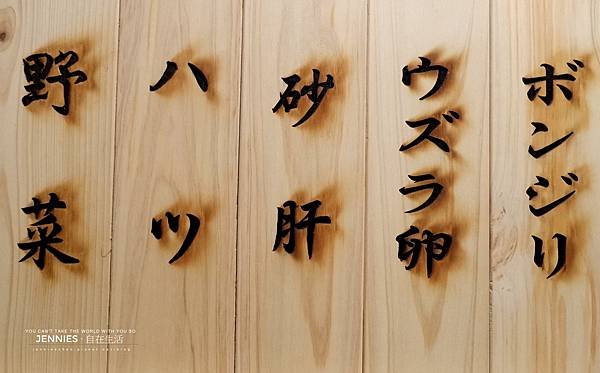 ボンジリ
ウズラ卵
砂肝
ハツ
野菜
YOU CAN'T TAKE THE WORLD WITH YOU SO
JENNIES | 自在生活